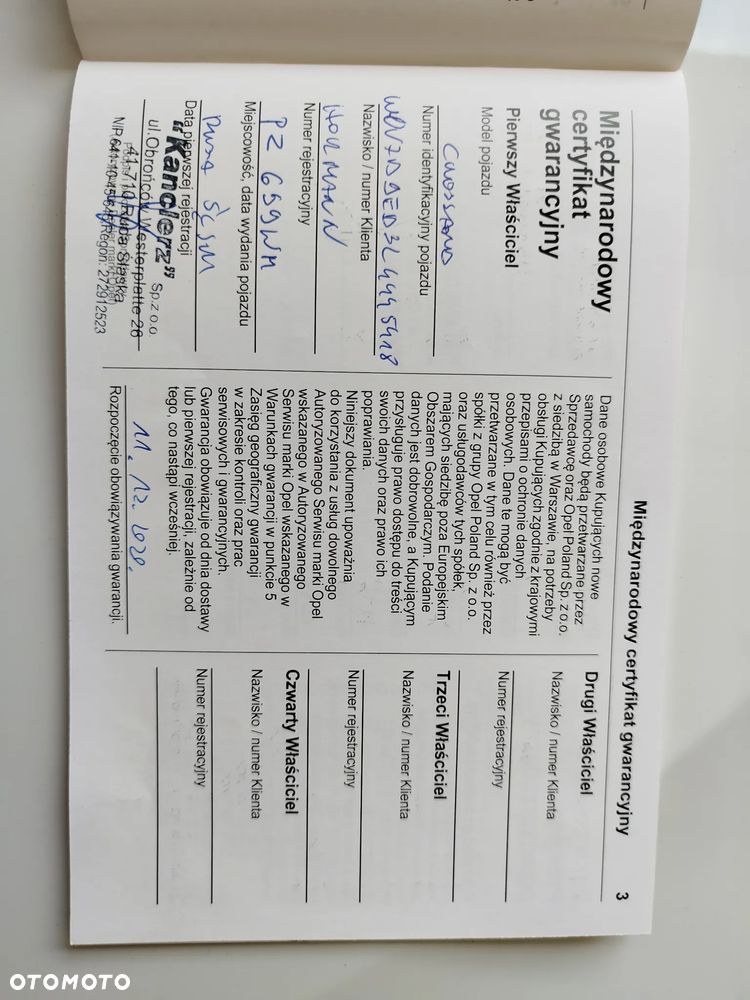 Międzynarodowy certyfikat gwarancyjny 3
Międzynarodowy
certyfikat
gwarancyjny
Pierwszy Właściciel
Model pojazdu
CROSSLAND
Numer identyfikacyjny pojazdu
Nazwisko / numer Klienta
HORMANN
Numer rejestracyjny
PZ 659WM
Miejscowość, data wydania pojazdu
RUDA ŚL
Data pierwszej rejestracji
"Kanclerz" Sp. z o.o.
ul. Obrońców Westerplatte 26
41-710 Ruda Śląska
Regon: 272912523
Dane osobowe Kupujących nowe
samochody będą przetwarzane przez
Sprzedawcę oraz Opel Poland Sp. z o.o.
z siedzibą w Warszawie, na potrzeby
obsługi Kupujących zgodnie z krajowymi
przepisami o ochronie danych
osobowych. Dane te mogą być
przetwarzane w tym celu również przez
spółki z grupy Opel Poland Sp. z o.o.
oraz usługodawców tych spółek,
mających siedzibę poza Europejskim
Obszarem Gospodarczym. Podanie
danych jest dobrowolne, a Kupującym
przysługuje prawo dostępu do treści
swoich danych oraz prawo ich
poprawiania.
Niniejszy dokument upoważnia
do korzystania z usług dowolnego
Autoryzowanego Serwisu marki Opel
wskazanego w Autoryzowanego
Serwisu marki Opel wskazanego w
Warunkach gwarancji w punkcie 5
Zasięg geograficzny gwarancji
w zakresie kontroli oraz prac
serwisowych i gwarancyjnych.
Gwarancja obowiązuje od dnia dostawy
lub pierwszej rejestracji, zależnie od
tego, co nastąpi wcześniej.
11. 12. 2020.
Rozpoczęcie obowiązywania gwarancji.
Drugi Właściciel
Nazwisko / numer Klienta
Numer rejestracyjny
Trzeci Właściciel
Nazwisko / numer Klienta
Numer rejestracyjny
Czwarty Właściciel
Nazwisko / numer Klienta
Numer rejestracyjny
OTOMOTO